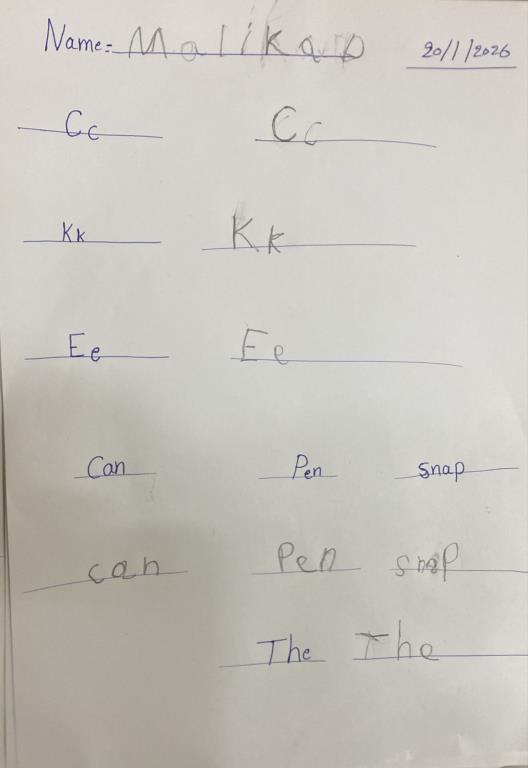 Name:- Malika D 20/1/2026
Cc Cc
Kk Kk
Ee Ee
Can Pen snap
can Pen snap
The The